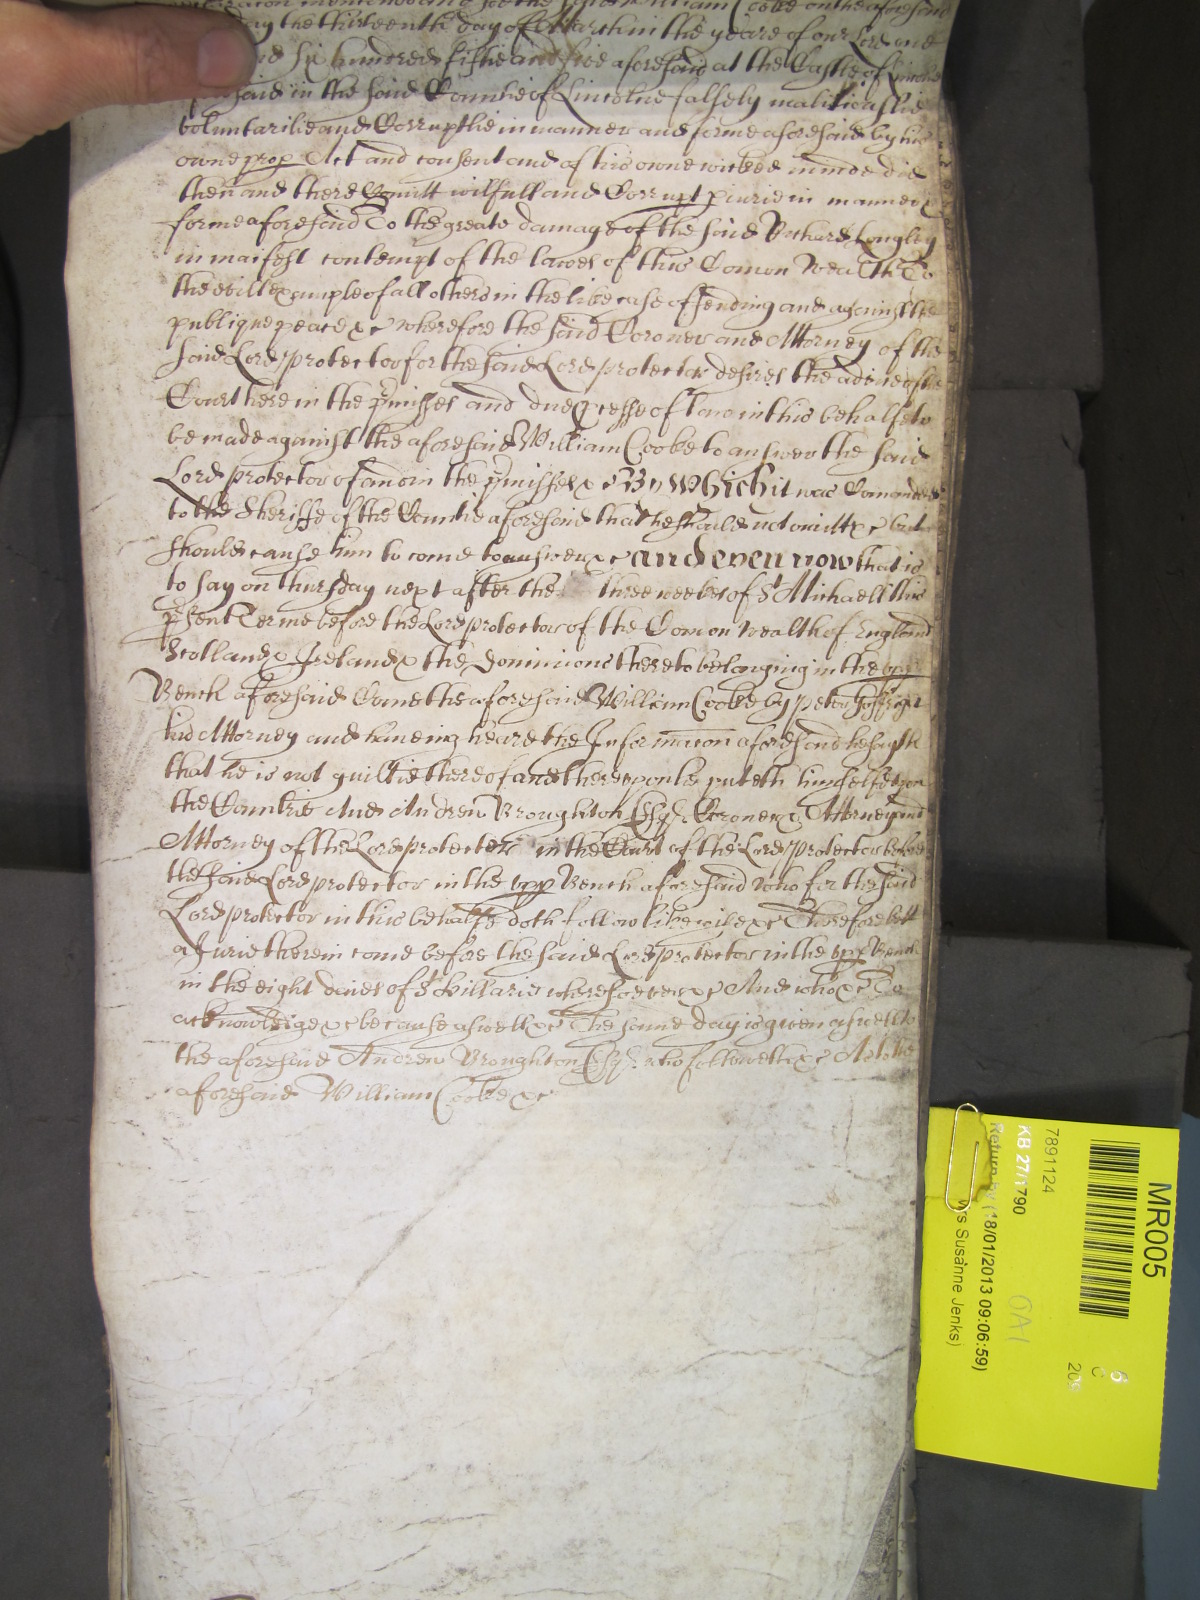 William Cooke on the aforesaid
day the thirteenth day of March in the yeare of our Lord one
six hundred fiftie and five aforesaid at the Castle of Lincolne
aforesaid in the said Countie of Lincolne falsely malitiouslie
voluntarilie and Corruptlie in manner and forme aforesaid by his
owne prop Act and consent and of his owne wicked minde did
then and there Comitt wilfull and Corrupt piurie in manner &
forme aforesaid To the greate damage of the said Richard Longley
in maifest contempt of the lawes of this Comon Wealth To
the evill example of all others in the like case offending and against the
publique peace &c Wherefore the said Coroner and Attorney of the
said Lord protector for the said Lord protector desires the advice of the
Court here in the pmisses and due pcesse of law in this behalfe to
be made against the aforesaid William Cooke to answer the said
Lord protector of and in the pmisses &c By which it was Comanded
to the Sheriffe of the Countie aforesaid that he should not omitt &c but
should cause him to come to answer &c and even now that is
to say on thursday next after the three weekes of St Michaell this
psent Terme before the Lord protector of the Comon Wealth of England
Scotland & Ireland & the dominions thereto belonging in the upp
Bench aforesaid Came the aforesaid William Cooke by peter
his Attorney and haveing heard the Informacon aforesaid he sayth
that he is not guiltie thereof and thereupon he puteth himselfe upon
the Countrie And Andrew Broughton Esqr Coroner & Attorney and
Attorney of the Lord protector in the Court of the Lord protector before
the said Lord protector in the upp Bench aforesaid who for the said
Lord protector in this behalfe doth follow likewise &c Therefore lett
a Jurie therein come before the said Lord protector in the upp Bench
in the eight daies of St Hillarie wheresoever &c And who &c To
acknowledge &c because aswell &c The same day is given aswell to
the aforesaid Andrew Broughton Esqr who followeth &c As to the
aforesaid William Cooke &c
MR005
7891124
KB 27/1790
Return by (18/01/2013 09:06:59)
Susanne Jenks)
6
C